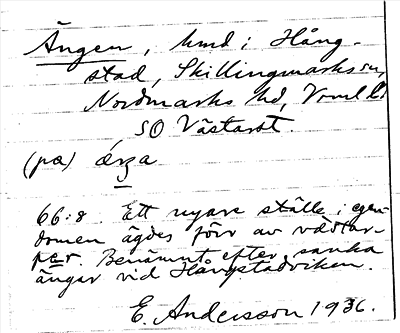 Ängen, hmd i Hång-
stad, Skillingmarks sn,
Nordmarks hd, Vrml l.
SO Västarvt.
(pa) ǽŋa
66:8. Ett nyare ställe; egen-
domen ägdes förr av
per. Benämnt efter sanka
ängar vid Hångstadviken.
E. Andersson 1936.